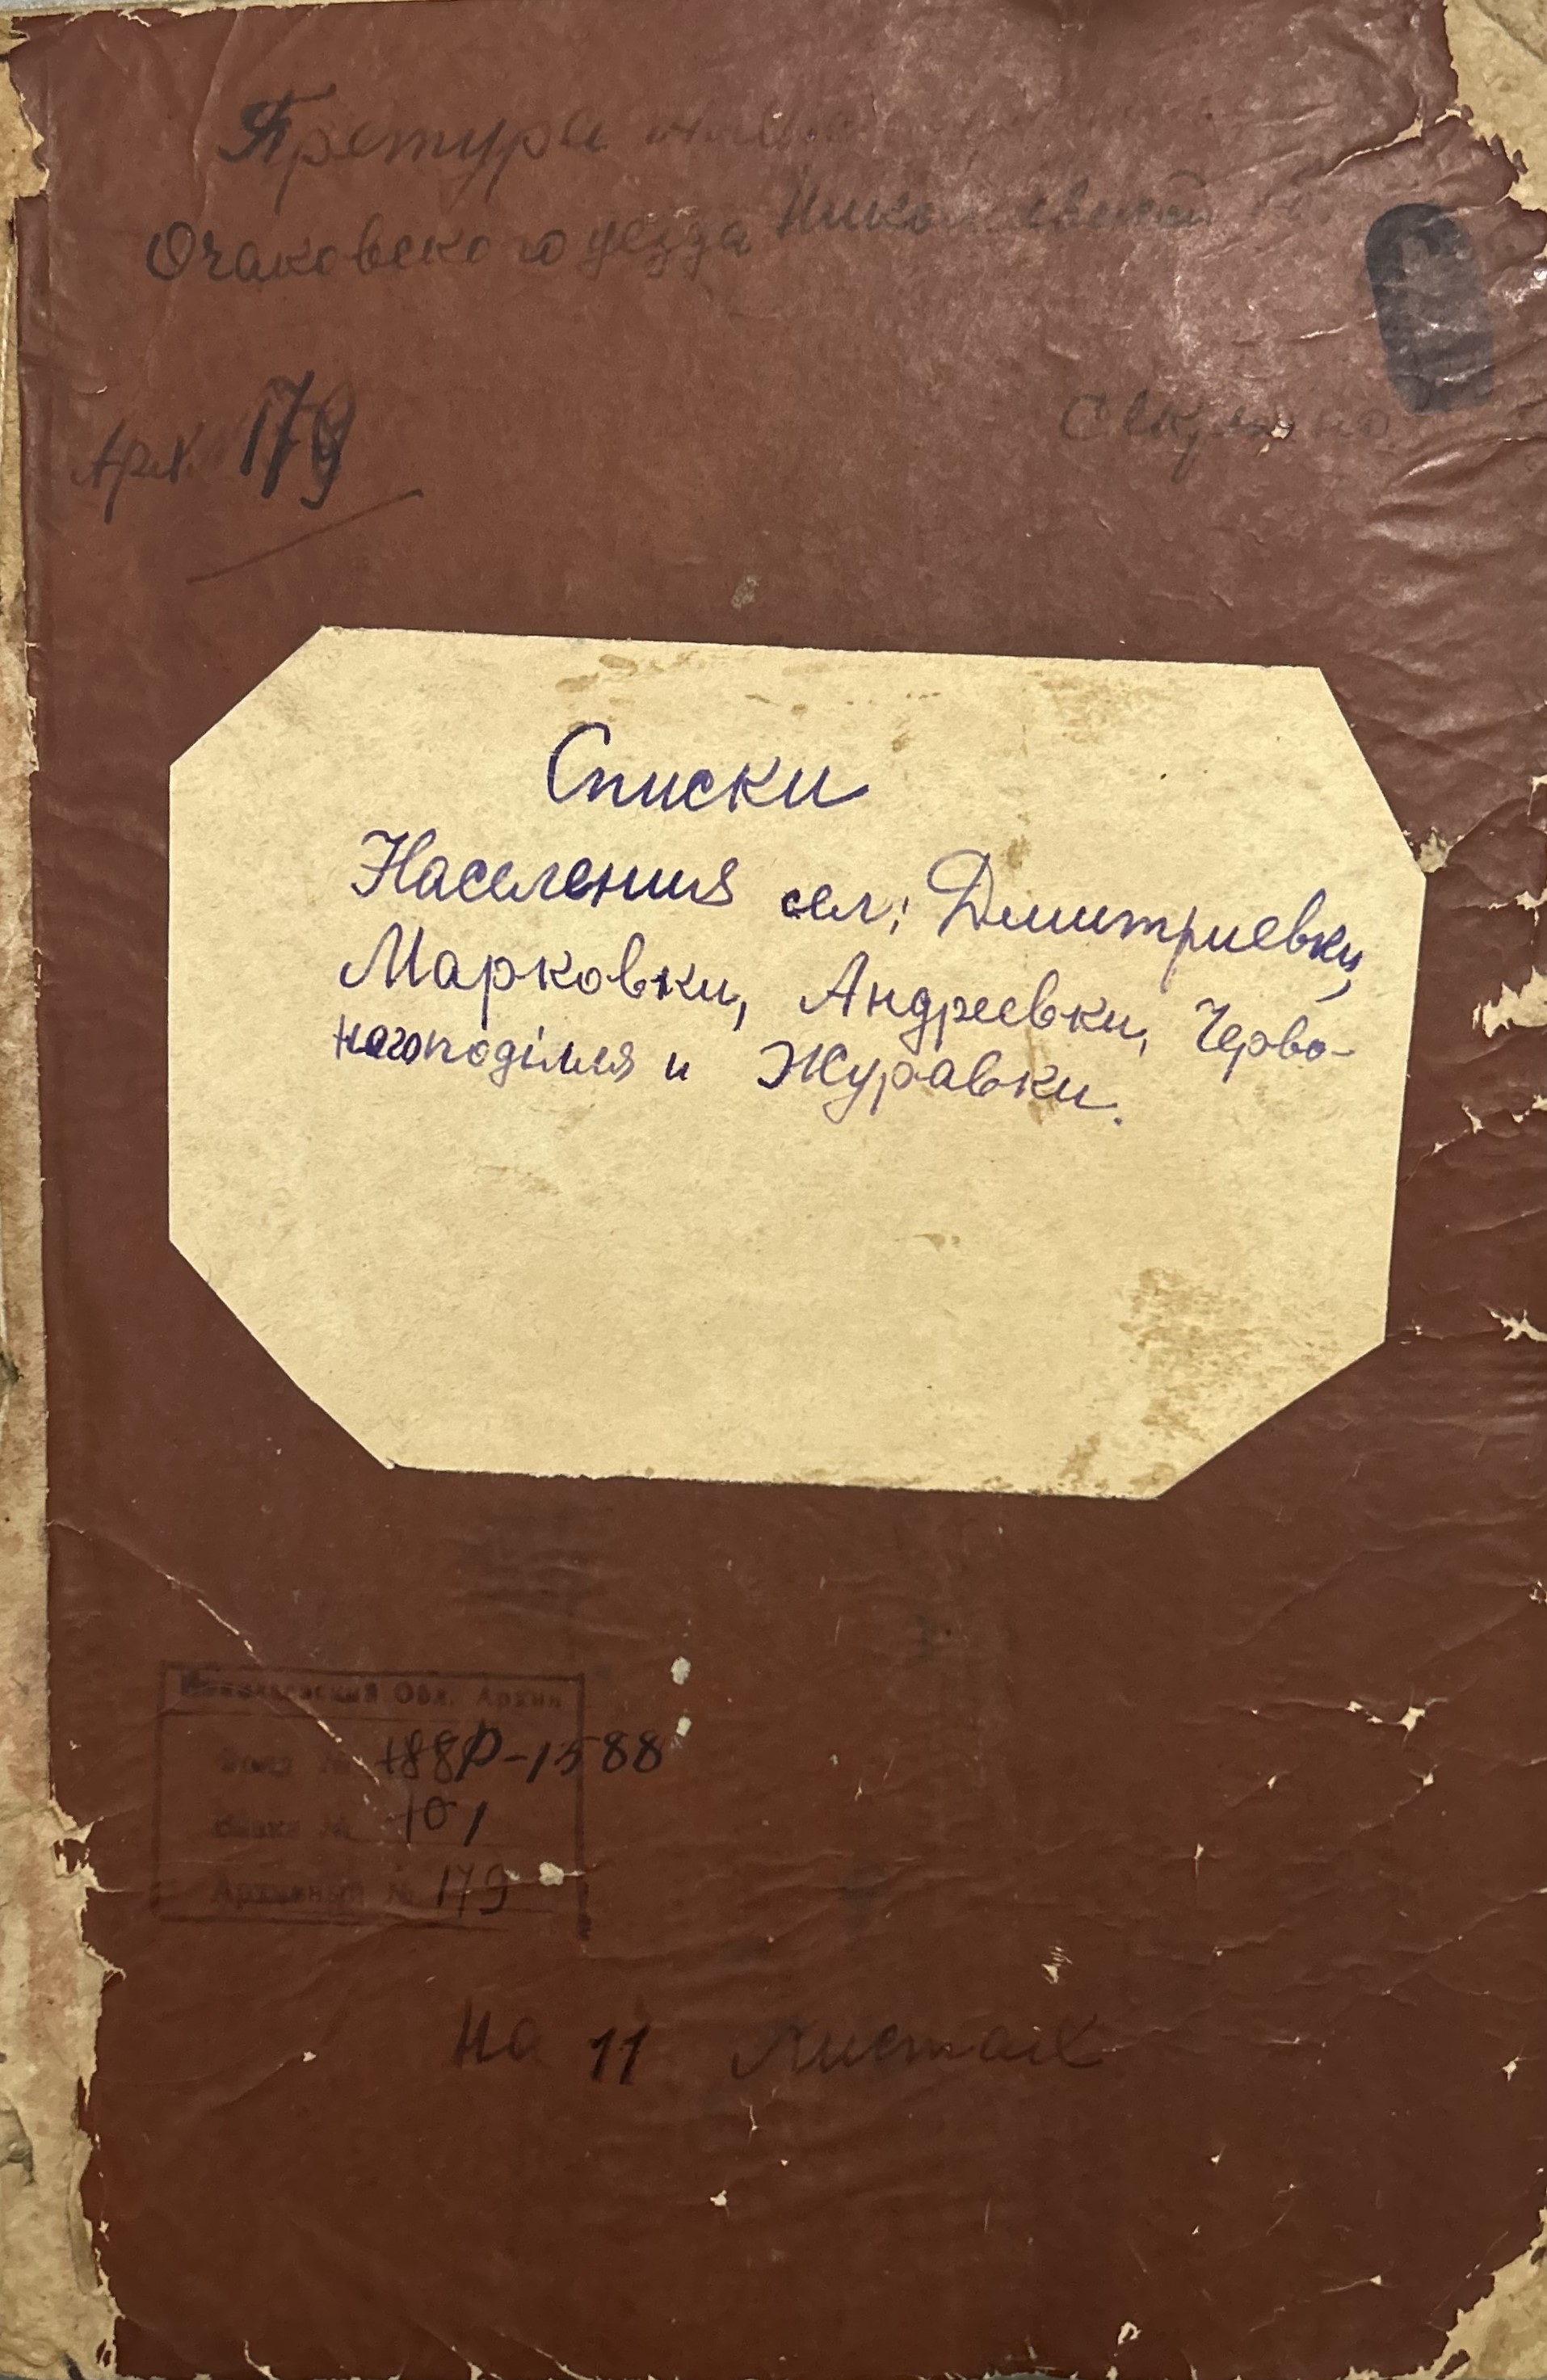 Претура
Очаковского уезда Николаевской
Арх. 179
Списки
Населения сел: Дмитриевки,
Марковки, Андреевки, Черво-
ногоподілля и Журавки.
Николаевский Обл. Архив
Фонд № Р-1588
1
Архивный № 179
На 11 листах